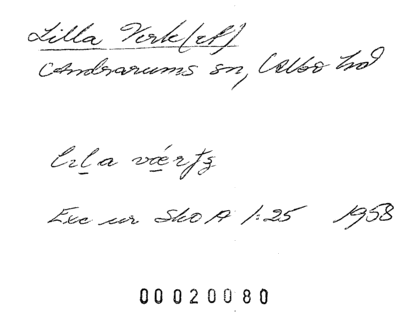 Lilla Verk (rf)
Andrarums sn, Albo hd
lıl̲a væ̲rʦ̲
Exc ur SkOA 1:25 1958
00020080